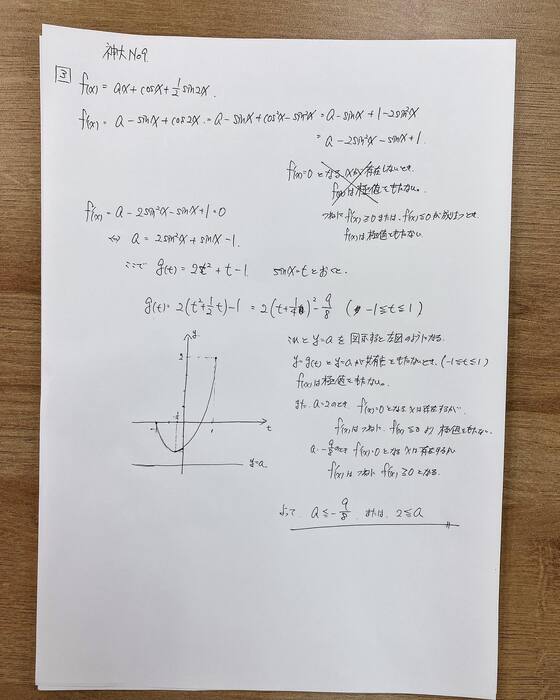 神大 No9
3
f(x) = ax + cosx + 1/2 sin2x.
f'(x) = a - sinx + cos2x = a - sinx + cos²x - sin²x = a - sinx + 1 - 2sin²x
= a - 2sin²x - sinx + 1.
f'(x) = 0 となる xが存在しないとき、
f(x)は極値をもたない。
f'(x) = a - 2sin²x - sinx + 1 = 0
つねに f'(x) ≧ 0 または、f'(x) ≦ 0 が成り立つとき、
⇔ a = 2sin²x + sinx - 1.
f(x)は極値をもたない
ここで g(t) = 2t² + t - 1. sinx = t とおくと、
g(t) = 2(t² + 1/2 t) - 1 = 2(t + 1/4)² - 9/8 ( -1 ≦ t ≦ 1 )
これと y = a を図示すると左図のようになる。
y = g(t) と y = a が共有点をもたないとき、(-1 ≦ t ≦ 1)
f(x)は極値をもたない。
また、a = 2のとき f'(x) = 0 となる xは存在するが、
f(x)はつねに f'(x) ≦ 0 より 極値をもたない。
a = -9/8のとき f'(x) = 0 となる xは存在するが
f(x)はつねに f'(x) ≧ 0 となる。
y
2
-1
1
t
y = a
よって、a ≦ -9/8 または、2 ≦ a